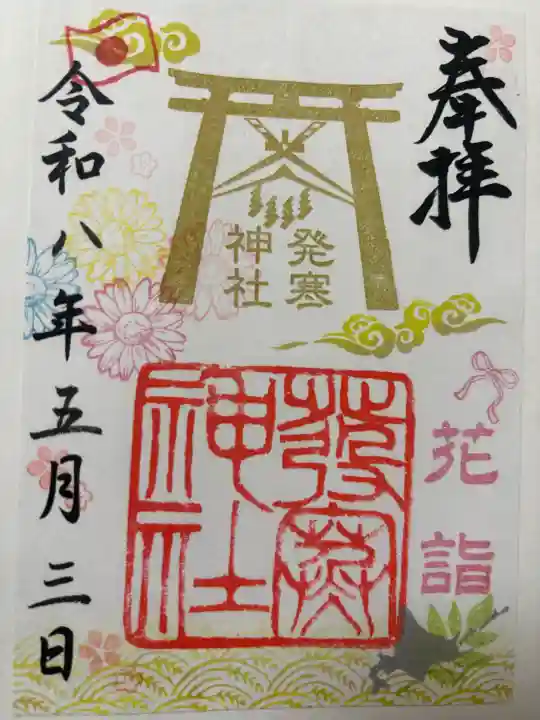 奉拝
発寒
神社
花詣
發寒
神社
令和八年五月三日